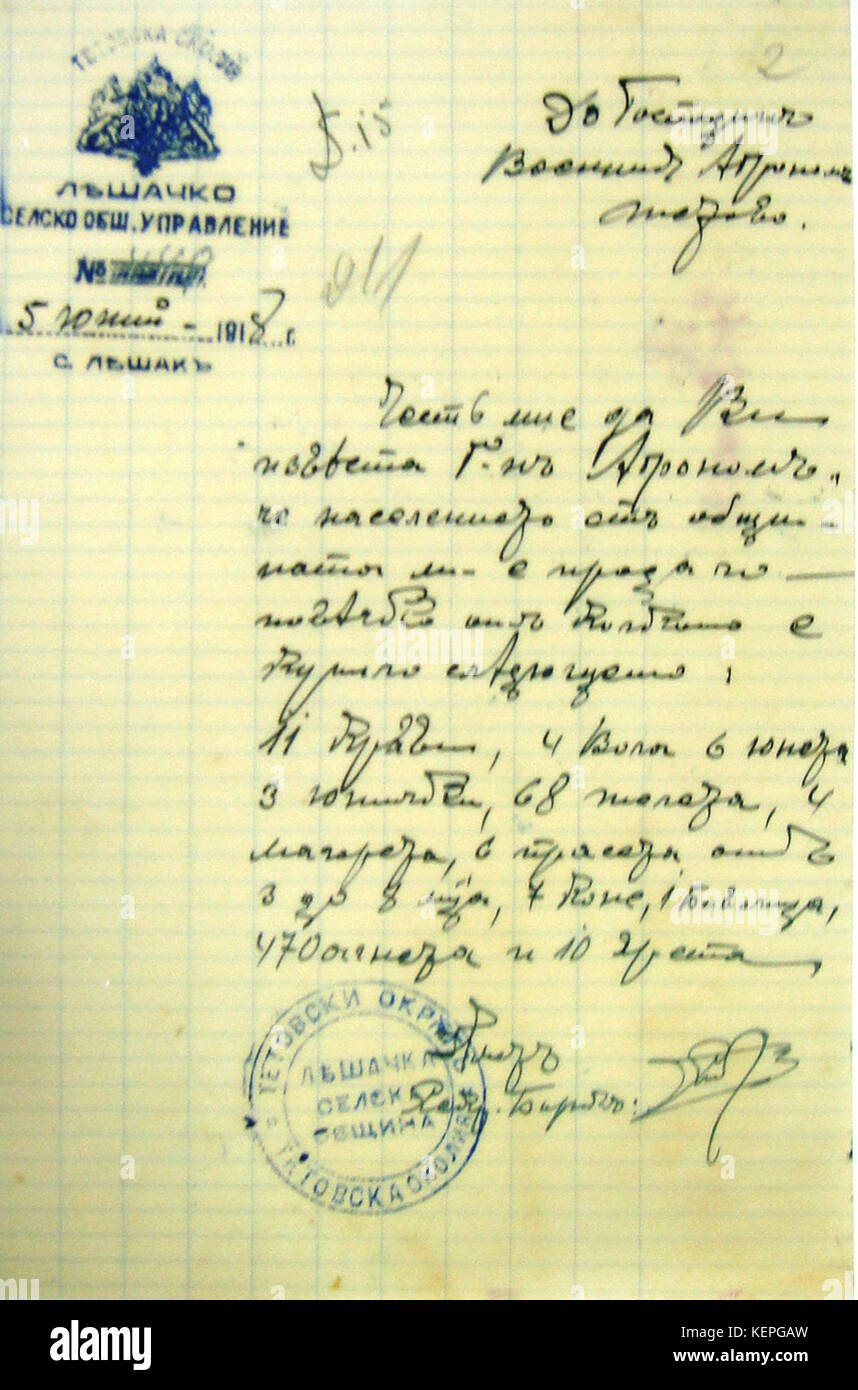 ТЕТОВСКА ОКОЛИЯ
ЛѢШАЧКО
СЕЛСКО ОБЩ. УПРАВЛЕНИЕ
№
5 юний - 1918 г.
с. ЛѢШАКЪ
2
До Господинъ
Военния Агрономъ
Тетово.
Честь ми е да Ви
извѣстя Г-нъ Агрономъ,
че населението отъ общи-
ната ми е продало
отъ която е
купило слѣдующето:
11 крави, 4 вола 6 юнета
3 юнички, 68 телета, 4
магарета, 6 прасета отъ
3 до 8 м/ца, 7 коне, 1 биволица,
470 агнета и 10
Кметъ
Секр. Бирникъ:
ТЕТОВСКИ ОКРѪГЪ
ЛѢШАЧКА
СЕЛСКА
ОБЩИНА
ТЕТОВСКА ОКОЛИЯ
alamy
alamy
Image ID: KEPGAW
www.alamy.com